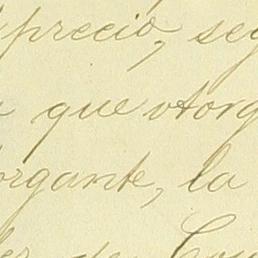 precio, seg
que otorg
organte, la
de